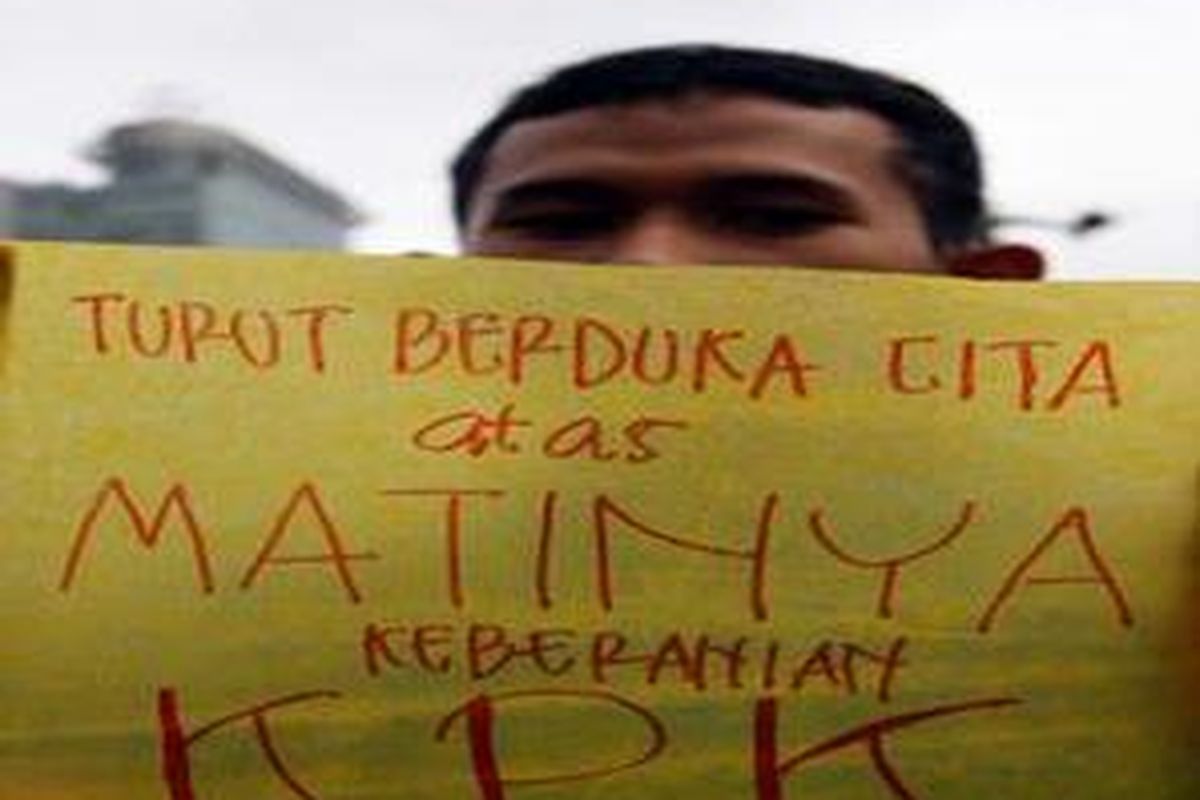 TURUT BERDUKA CITA
atas
MATINYA
KEBERANIAN
KPK